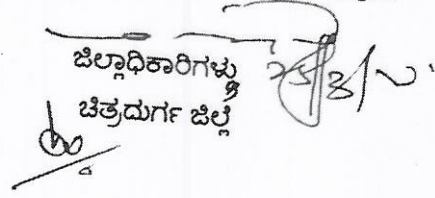 ಜಿಲ್ಲಾಧಿಕಾರಿಗಳು
ಚಿತ್ರದುರ್ಗ ಜಿಲ್ಲೆ